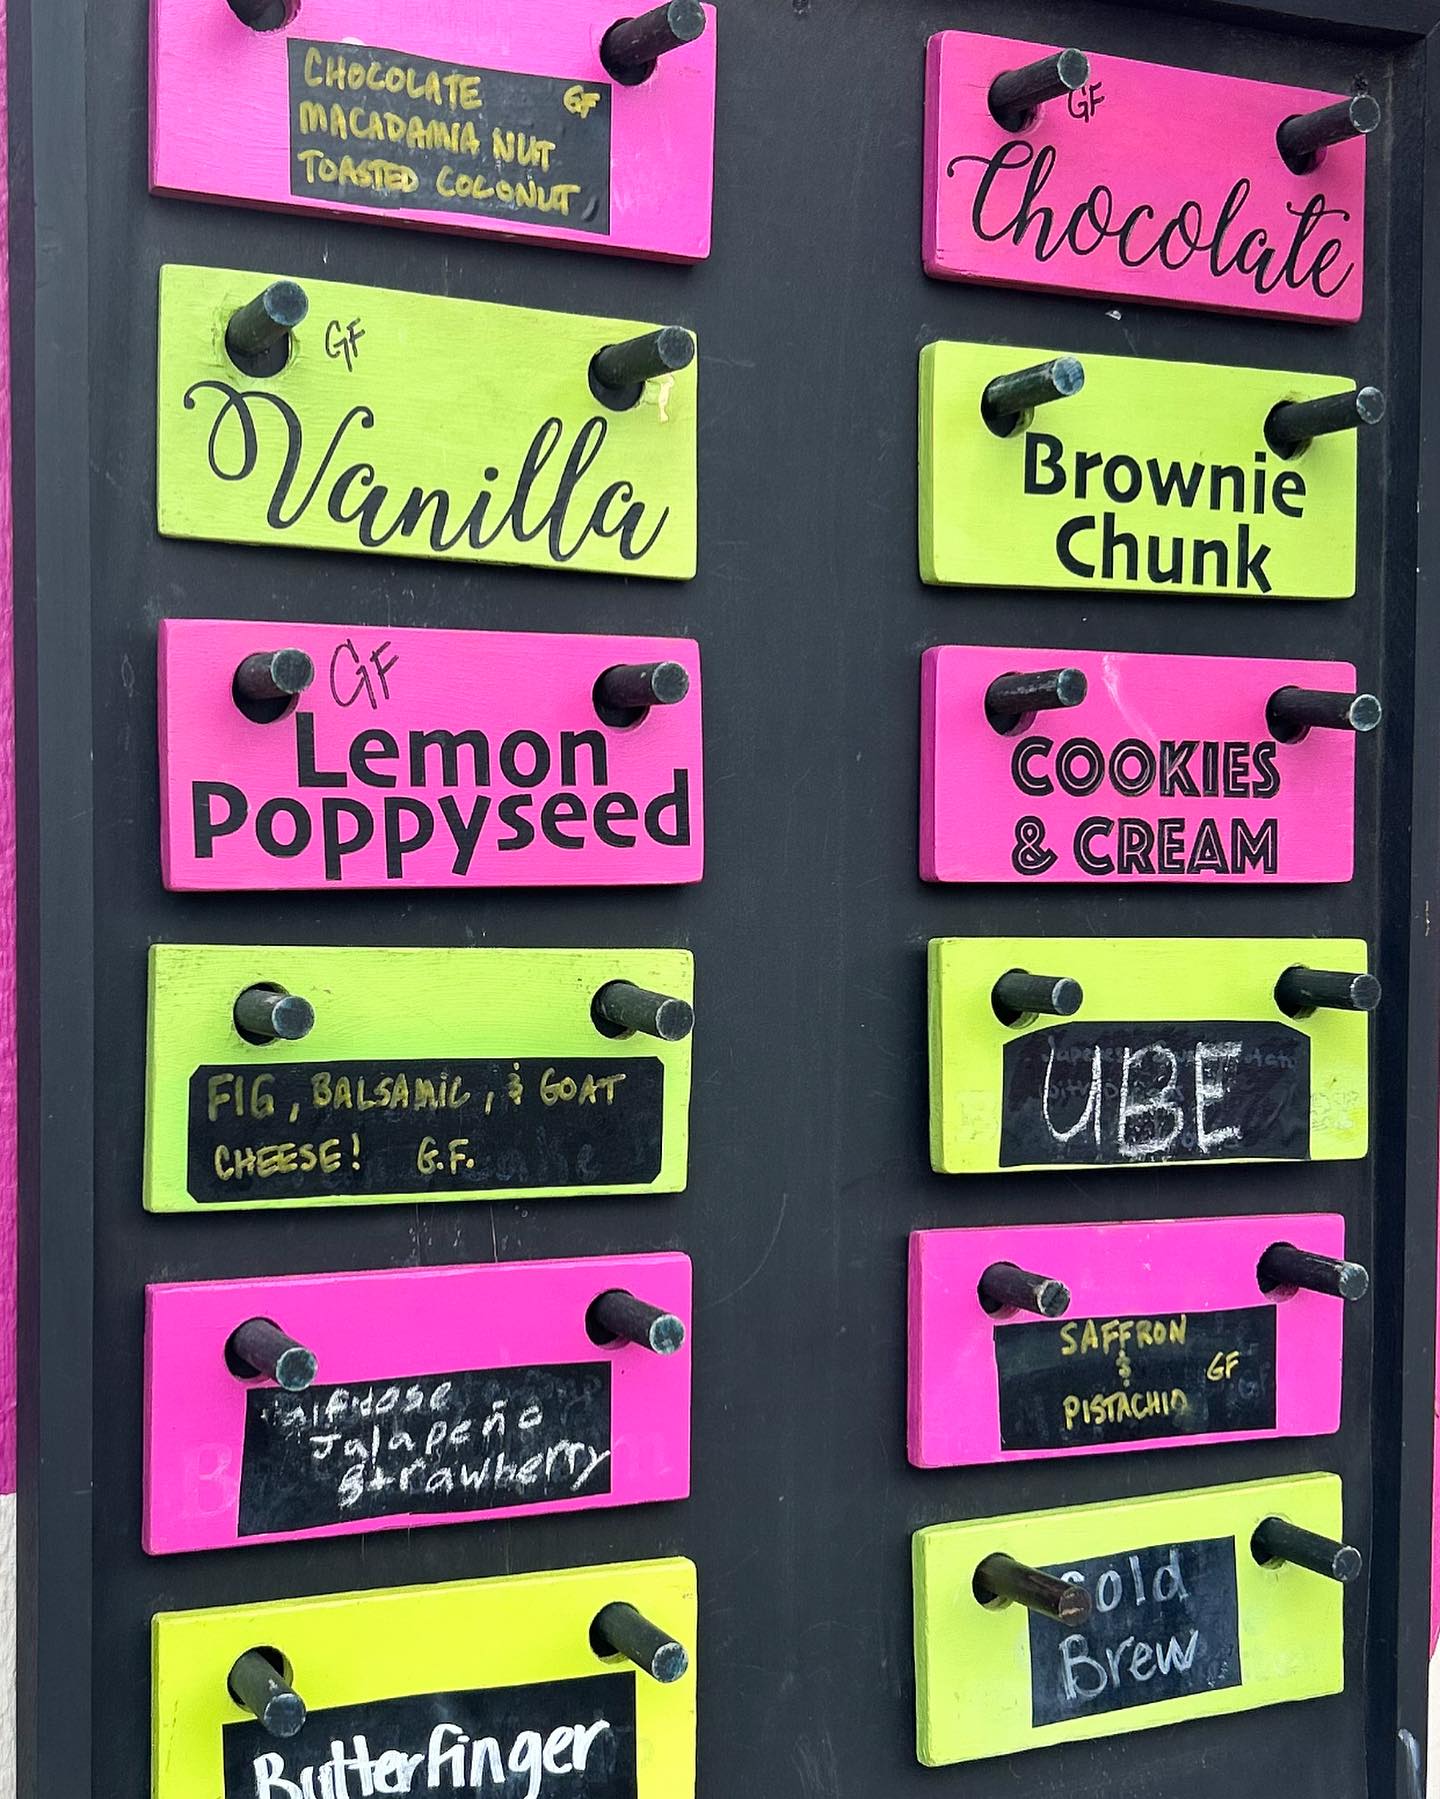 CHOCOLATE GF
MACADAMIA NUT
TOASTED COCONUT
GF
Vanilla
GF
Lemon
Poppyseed
FIG, BALSAMIC, & GOAT
CHEESE! G.F.
Jalapeño
strawberry
Butterfinger
GF
Chocolate
Brownie
Chunk
COOKIES
& CREAM
UBE
SAFFRON
& GF
PISTACHIO
Cold
Brew